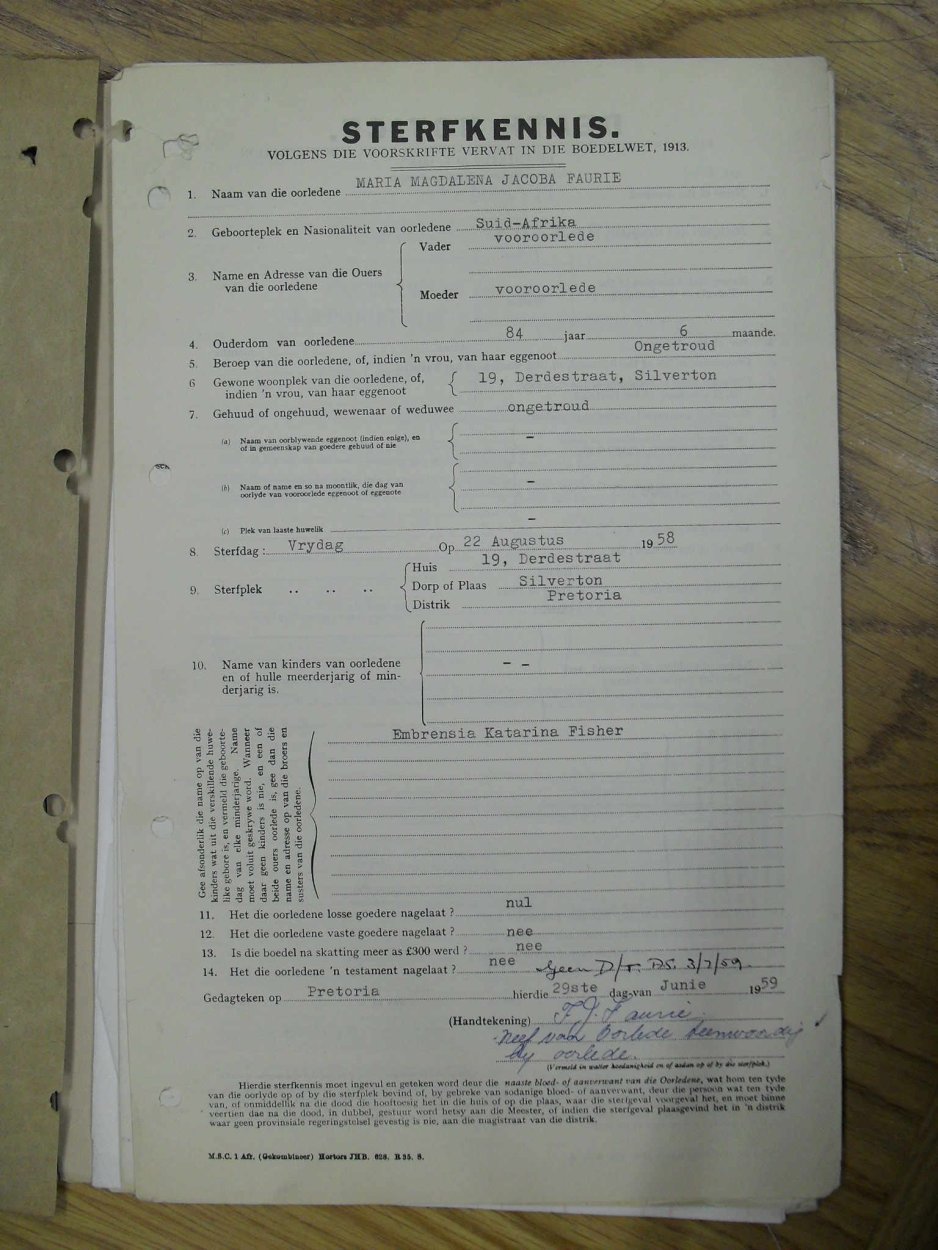 STERFKENNIS.
VOLGENS DIE VOORSKRIFTE VERVAT IN DIE BOEDELWET, 1913.
1. Naam van die oorledene MARIA MAGDALENA JACOBA FAURIE
2. Geboorteplek en Nasionaliteit van oorledene Suid-Afrika
Vader vooroorlede
3. Name en Adresse van die Ouers
van die oorledene
Moeder vooroorlede
4. Ouderdom van oorledene 84 jaar 6 maande.
5. Beroep van die oorledene, of, indien 'n vrou, van haar eggenoot Ongetroud
6 Gewone woonplek van die oorledene, of, 19, Derdestraat, Silverton
indien 'n vrou, van haar eggenoot
7. Gehuud of ongehuud, wewenaar of weduwee ongetroud
(a) Naam van oorblywende eggenoot (indien enige), en –
of in gemeenskap van goedere gehuud of nie
(b) Naam of name en so na moontlik, die dag van –
oorlyde van vooroorlede eggenoot of eggenote
(c) Plek van laaste huwelik –
8. Sterfdag : Vrydag Op 22 Augustus 19 58
Huis 19, Derdestraat
9. Sterfplek .. .. .. Dorp of Plaas Silverton
Distrik Pretoria
10. Name van kinders van oorledene – –
en of hulle meerderjarig of min-
derjarig is.
Gee afsonderlik die name op van die
kinders wat uit die verskillende huwe-
like gebore is, en vermeld die geboorte-
dag van elke minderjarige. Name
moet voluit geskrywe word. Wanneer
daar geen kinders is nie, en een of
beide ouers oorlede is, gee dan die
name en adresse op van die broers en
susters van die oorledene.
Embrensia Katarina Fisher
11. Het die oorledene losse goedere nagelaat ? nul
12. Het die oorledene vaste goedere nagelaat ? nee
13. Is die boedel na skatting meer as £300 werd ? nee
14. Het die oorledene 'n testament nagelaat ? nee Geen D/r. 3/7/59
Gedagteken op Pretoria hierdie 29ste dag van Junie 19 59
(Handtekening) F. J. Faurie
Neef van Oorlede teenwoordig
by oorlede.
(Vermeld in watter hoedanigheid en of sodan op of by die sterfplek.)
Hierdie sterfkennis moet ingevul en geteken word deur die naaste bloed- of aanverwant van die Oorledene, wat hom ten tyde
van die oorlyde op of by die sterfplek bevind of, by gebreke van sodanige bloed- of aanverwant, deur die persoon wat ten tyde
van, of onmiddellik na die dood die hooftoesig het in die huis of op die plaas, waar die sterfgeval voorgeval het, en moet binne
veertien dae na die dood, in dubbel, gestuur word hetsy aan die Meester, of indien die sterfgeval plaasgevind het in 'n distrik
waar geen provinsiale regeringstelsel gevestig is nie, aan die magistraat van die distrik.
M.B.C. 1 Afr. (Gekombineer) Hortors JHB. 628. R 35. S.